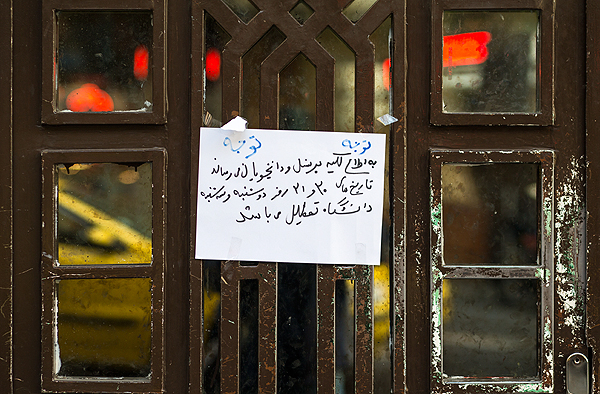 توجه توجه
به اطلاع کلیه پرسنل و دانشجویان می رساند
تاریخ های ۳۰ و ۳۱ روز دوشنبه و سه شنبه
دانشگاه تعطیل می باشد